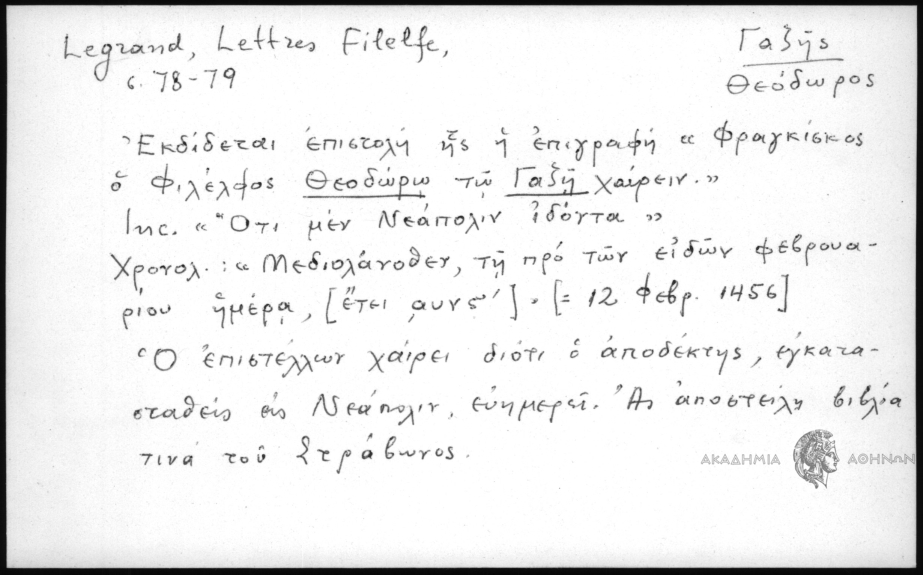 Legrand, Lettres Filelfe,
σ. 78-79
Γαζῆς
Θεόδωρος
Ἐκδίδεται ἐπιστολή ἧς ἡ ἐπιγραφή « Φραγκίσκος
ὁ Φιλέλφος Θεοδώρῳ τῷ Γαζῇ χαίρειν.»
Inc. « Ὅτι μέν Νεάπολιν ἰδόντα »
Χρονολ.: « Μεδιολάνοθεν, τῇ πρό τῶν εἰδῶν φεβρουα-
ρίου ἡμέρᾳ, [ἔτει ͵αυνς´]. [= 12 Φεβρ. 1456]
Ὁ ἐπιστέλλων χαίρει διότι ὁ ἀποδέκτης, ἐγκατα-
σταθείς εἰς Νεάπολιν, εὐημερεῖ. Ἄς ἀποστείλῃ βιβλία
τινά τοῦ Στράβωνος.
ΑΚΑΔΗΜΙΑ ΑΘΗΝΩΝ